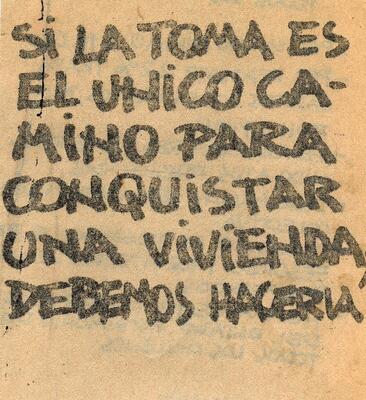 Si LA TOMA ES
EL UNICO CA-
MINO PARA
CONQUISTAR
UNA VIVIENDA,
DEBEMOS HACERLA